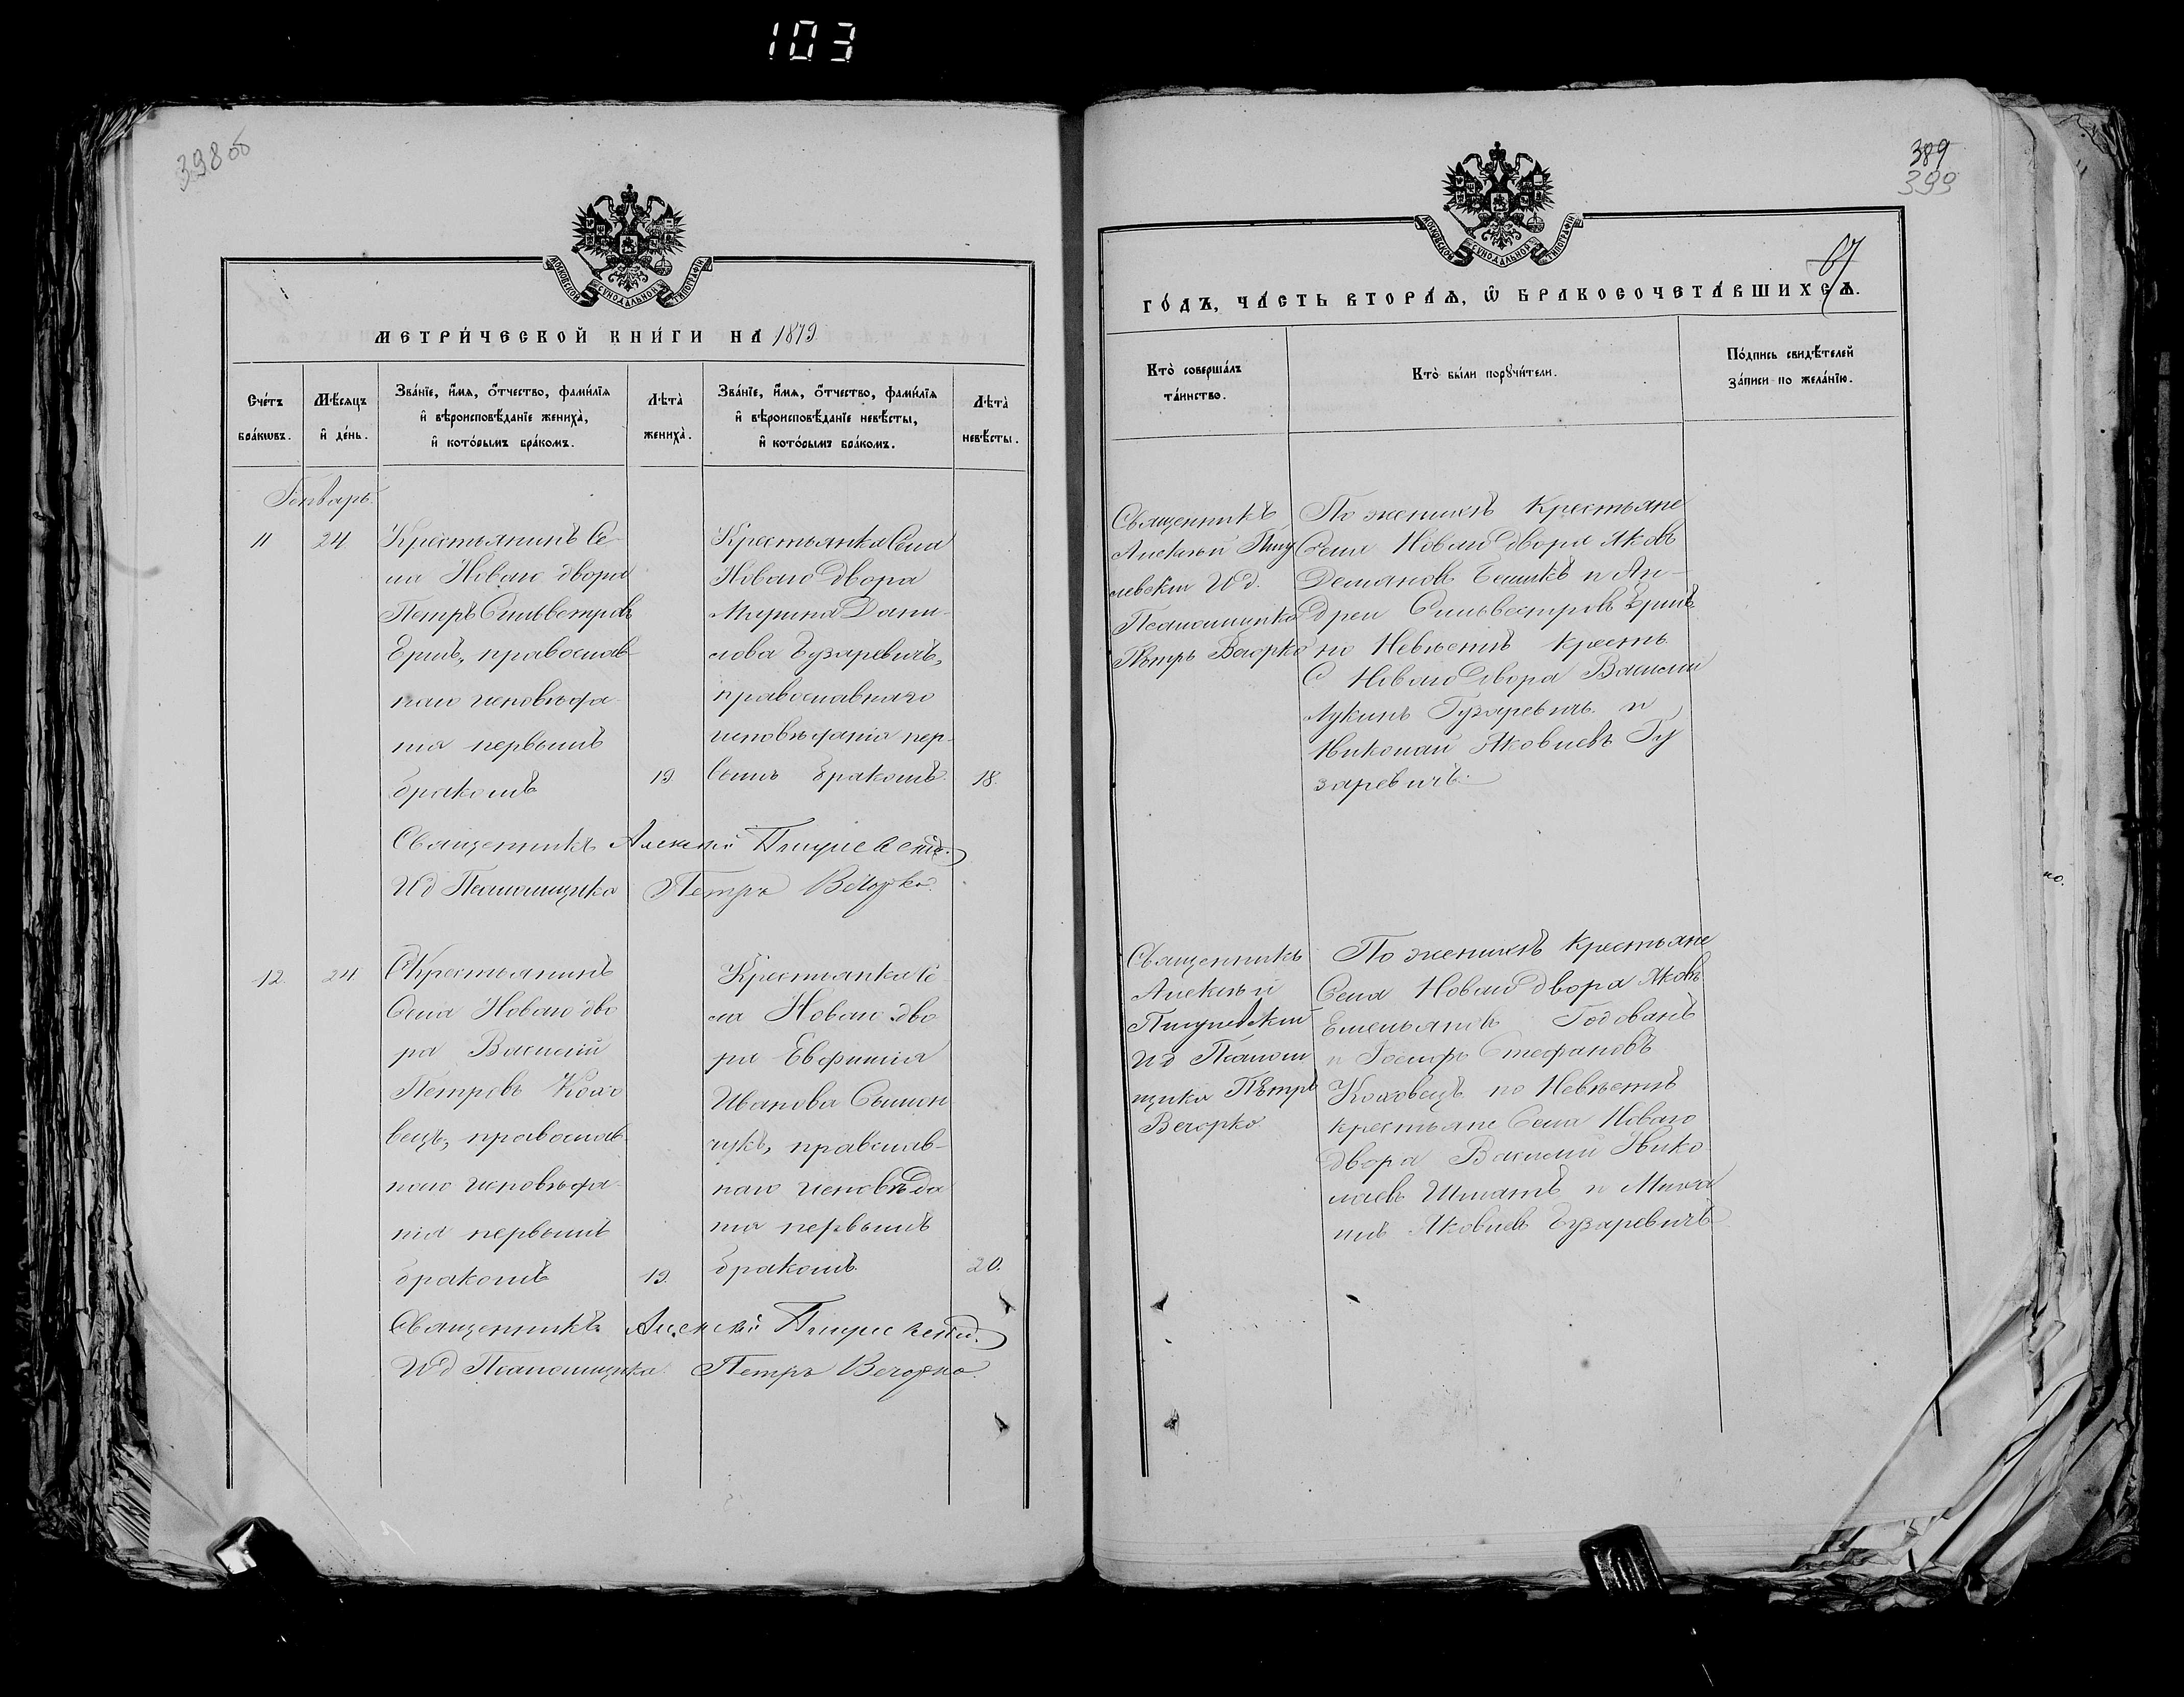 103
398 об
МОСКОВСКОЙ СѴНОДАЛЬНОЙ ТИПОГРАФІИ
МЕТРИ́ЧЕСКОЙ КНИ́ГИ НА 1879
Сче́тъ бра́кѡвъ.
Мѣ́сяцъ и҆ де́нь.
Зва́нїе, и҆́мѧ, ѻ҆́тчество, фами́лїѧ
и҆ вѣроисповѣ́данїе жениха̀,
и҆ кото́рымъ бра́комъ.
Лѣта̀ жениха̀.
Зва́нїе, и҆́мѧ, ѻ҆́тчество, фами́лїѧ
и҆ вѣроисповѣ́данїе невѣ́сты,
и҆ кото́рымъ бра́комъ.
Лѣта̀ невѣ́сты.
Генварь
11 24
Крестьянинъ Се-
ла Новаго двора
Петръ Сильвестровъ
Ершъ, православ-
наго исповѣда-
нія первымъ
бракомъ
19
Крестьянка Села
Новаго Двора
Марина Дани-
лова Гузаревичъ,
православнаго
исповѣданія пер-
вымъ бракомъ.
18.
Священникъ Алексѣй
И д Псаломщика Петръ Вечорко.
12. 24
Крестьянинъ
Села Новаго дво
ра Василій
Петровъ Кохо
вецъ, православ
наго исповѣда-
нія первымъ
бракомъ
19.
Крестьянка Се
ла Новаго дво
ра Евфимія
Иванова Сымон
чукъ, православ-
наго исповѣда
нія первымъ
бракомъ.
20.
Священникъ Алексѣй
И д Псаломщика Петръ Вечорко.
389
399
МОСКОВСКОЙ СѴНОДАЛЬНОЙ ТИПОГРАФІИ
ГО́ДЪ, ЧА́СТЬ ВТОРА́Ѧ, Ѡ҆ БРАКОСОЧЕТА́ВШИХСѦ.
Кто̀ соверша́лъ
та́инство.
Кто̀ бы́ли порꙋчи́тели.
По́дпись свидѣ́телей
за́писи по жела́нїю.
Священникъ
Алексѣй
И д.
Псаломщика
Петръ Вечорко
По женихѣ Крестьяне
Села Новаго Двора Яковъ
Демяновъ и Ан-
дрей Сильвестровъ Ершъ
по Невѣстѣ Крестъ.
С Новаго Двора Василій
Лукинъ Гузаревичъ и
Николай Яковлевъ Гу
заревичъ.
Священникъ
Алексѣй
И д Псалом
щика Петръ
Вечорко
По женихѣ Крестьяне
Села Новаго Двора Яковъ
Емельяновъ Годованъ
и Іосифъ Стефановъ
Коховецъ по Невѣстѣ
крестьяне Села Новаго
Двора Василій Нико
лаевъ Шматъ и Миха
илъ Яковлевъ Гузаревичъ